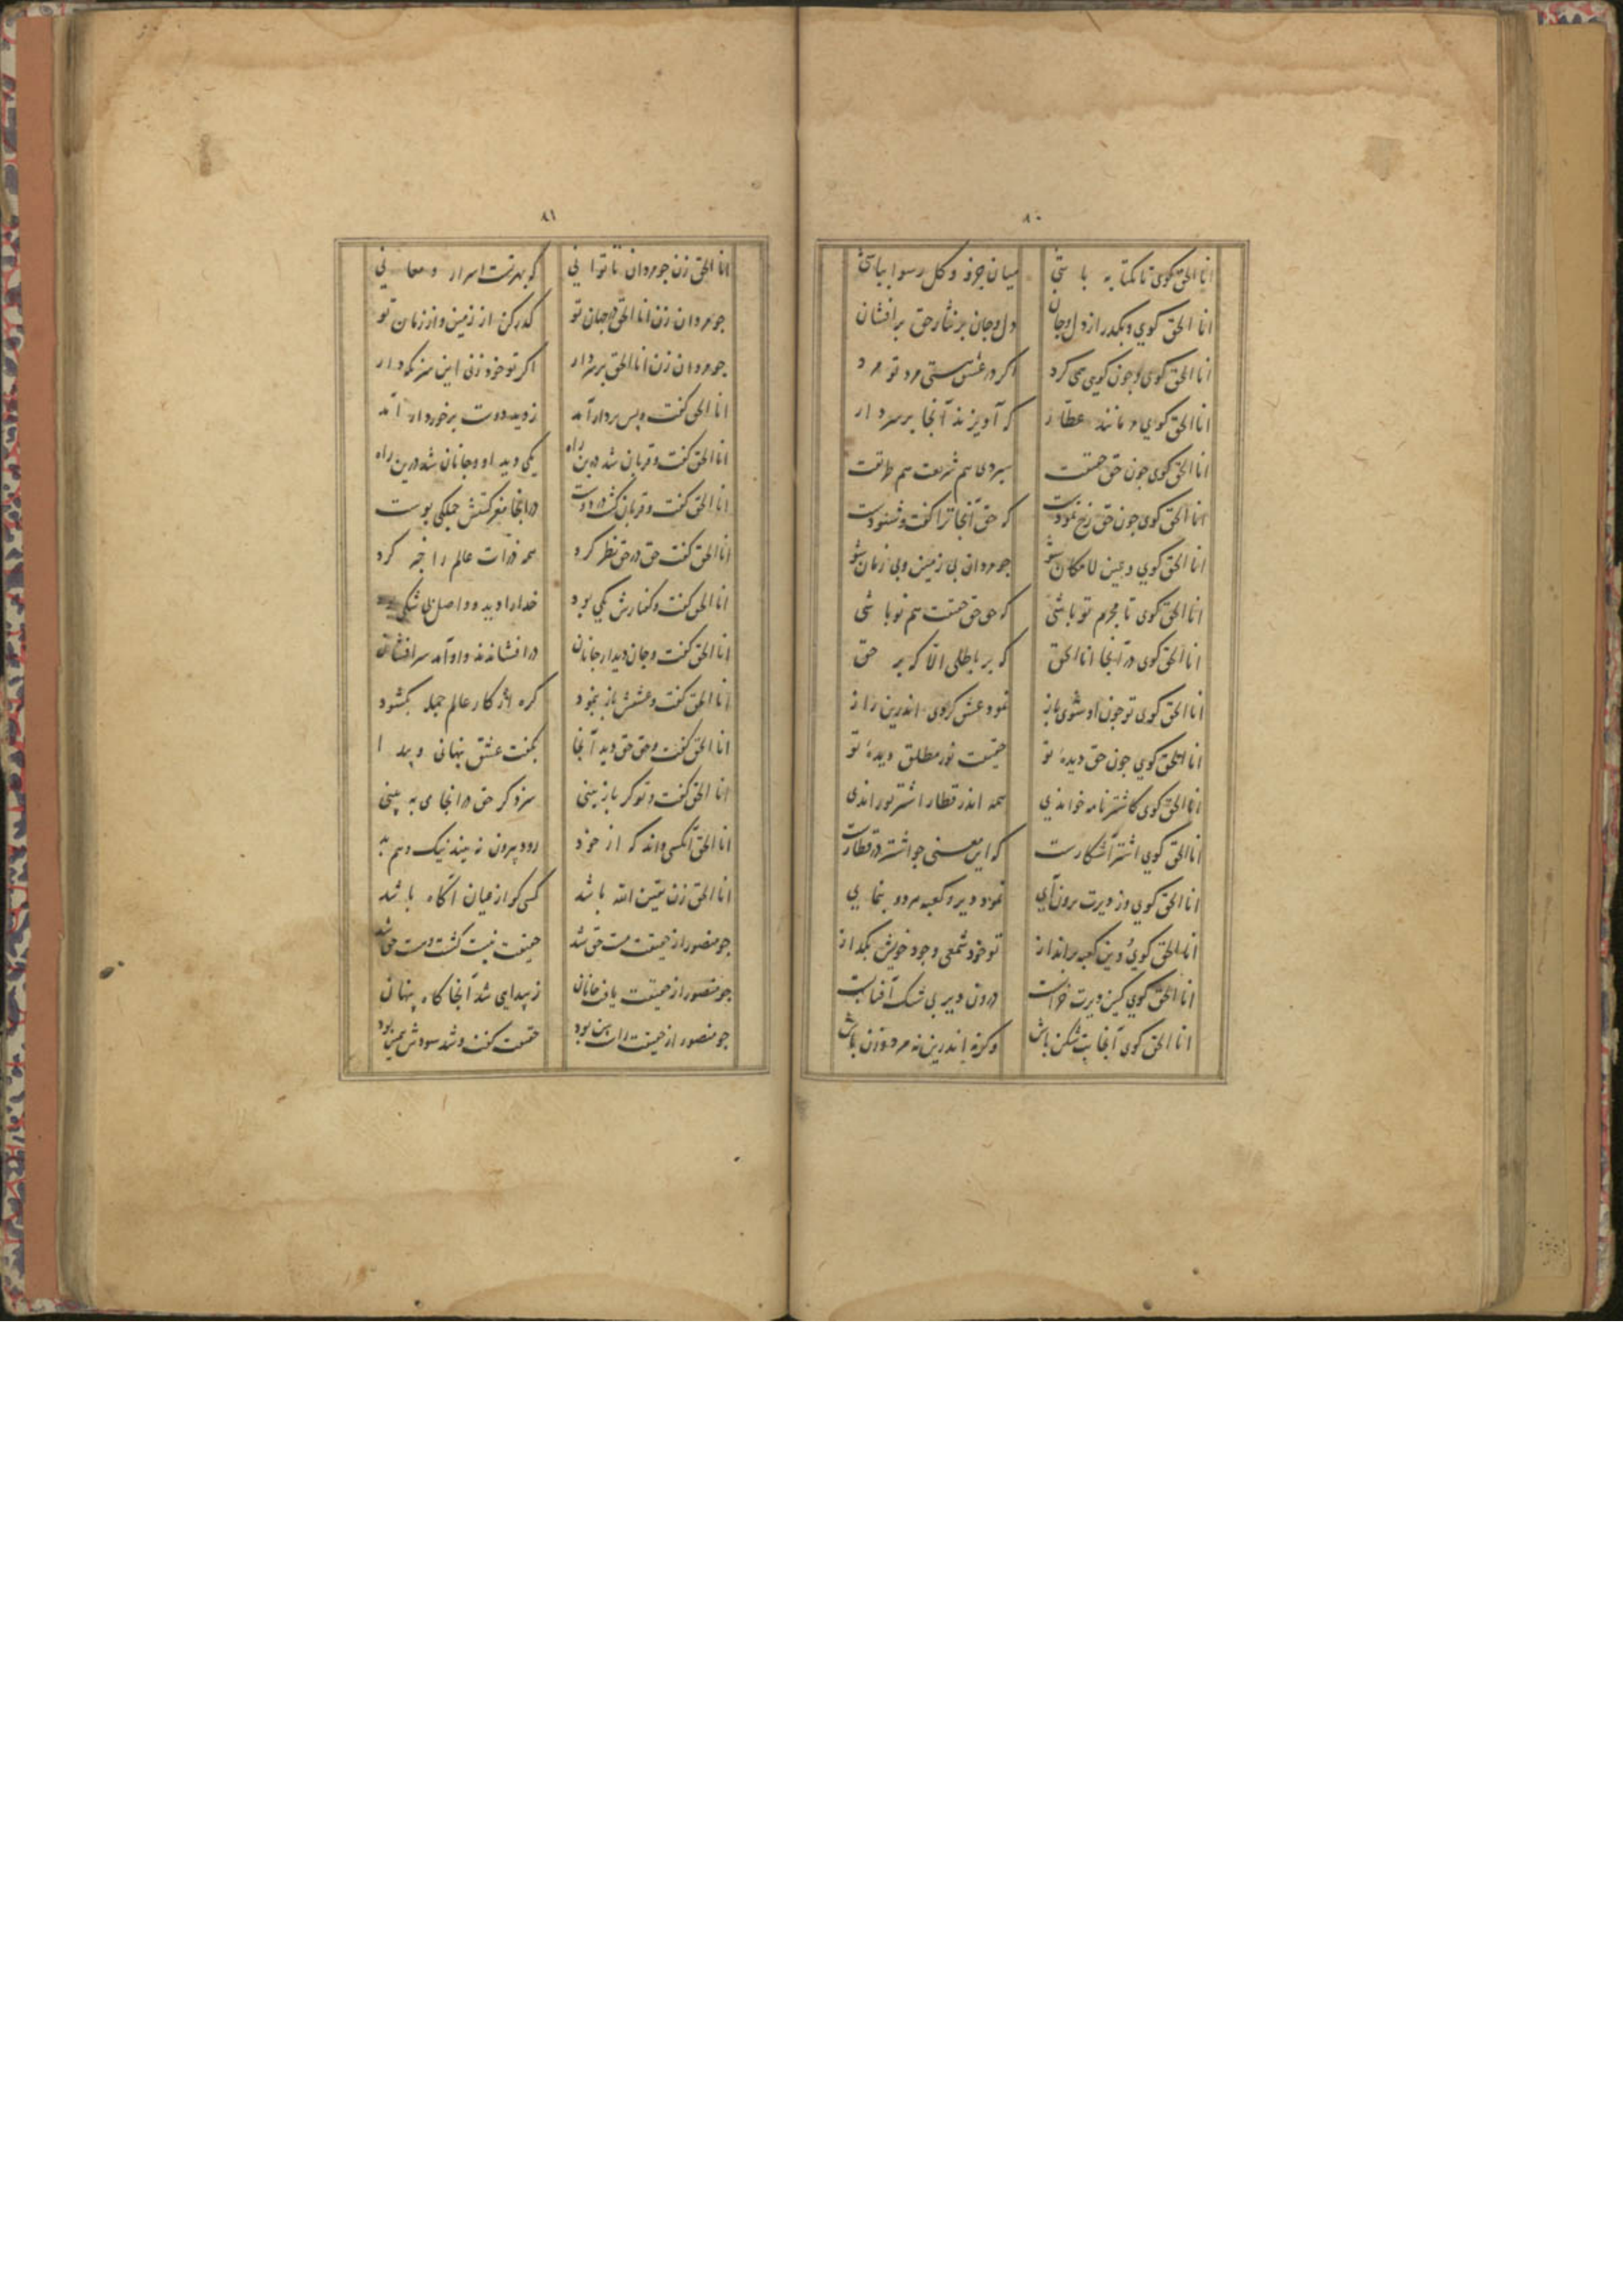 ۸۰
انا الحق کوی تا یکتا به باشی میان جزو و کل رسوا بباشی
انا الحق کوی و بکذر از دل و جان دل و جان بر نثار حق برافشان
انا الحق کوی و جون کوی می کرد اکر در عشق هستی مرد تو مرد
انا الحق کوی و مانند عطار که آویزند آنجا بر سر دار
انا الحق کوی جون حق حقیقت سپردی هم شریعت هم طریقت
انا الحق کوی جون حق رخ نمودت که حق آنجا ترا کفت و شنودت
انا الحق کوی و عین لامکان شو جو مردان بی زمین و بی زمان شو
انا الحق کوی تا محرم تو باشی که حق حق حقیقت هم تو باشی
انا الحق کوی در آنجا انا الحق که بر باطلی الا که بر حق
انا الحق کوی تو جون او شوی باز نمود عشق کردی اندرین راز
انا الحق کوی جون حق دیدهٔ تو حقیقت نور مطلق دیدهٔ تو
انا الحق کوی کاشترنامه خواندی همه اندر قطار اشتر براندی
انا الحق کوی اشتر آشکارت که این معنی جو اشتر در قطارت
انا الحق کوی وز دیرت برون آی نمود دیر و کعبه هر دو بنمای
انا الحق کوی و این کعبه برانداز تو خود شمعی وجود خویش بکداز
انا الحق کوی کین دیرت خرابست درون دیر بی شک آفتابست
انا الحق کوی آنجا بت شکن باش وکرنه اندرین نه مرد و زن باش
۸۱
انا الحق زن جو مردان تا توانی که بهر تست اسرار و معانی
جو مردان زن انا الحق در جهان تو کذر کن از زمین و از زمان تو
جو مردان زن انا الحق بر سر دار اکر تو خود زنی این سر نکه دار
انا الحق کفت و پس بر دار آمد ز دید دوست برخوردار آمد
انا الحق کفت و قربان شد درین راه یکی دید او و جانان شد درین راه
انا الحق کفت و قربان کشت در دوست در آنجا مغز کشتش جملکی پوست
انا الحق کفت حق در حق نظر کرد همه ذرات عالم را خبر کرد
انا الحق کفت و کفتارش یکی بود خدا را دید و واصل بی شکی بود
انا الحق کفت و جان دیدار جانان در افشاندند و او آمد سرافشان
انا الحق کفت و عشقش باز بنمود کره از کار عالم جمله بکشود
انا الحق کفت و حق حق دید آنجا بکفت عشق پنهانی و پیدا
انا الحق کفت و تو کر باز بینی سزد کر حق در آنجا می به بینی
انا الحق آنکسی داند که از خود رود بیرون نه بیند نیک و هم بد
انا الحق زن یقین الله باشد کسی کو از عیان آکاه باشد
جو منصور از حقیقت مست حق شد حقیقت نیست کشت و هست حق شد
جو منصور از حقیقت یافت جانان ز پیدایی شد آنجا کاه پنهان
جو منصور از حقیقت راست بین بود حقیقت کفت و شد سودش همین بود